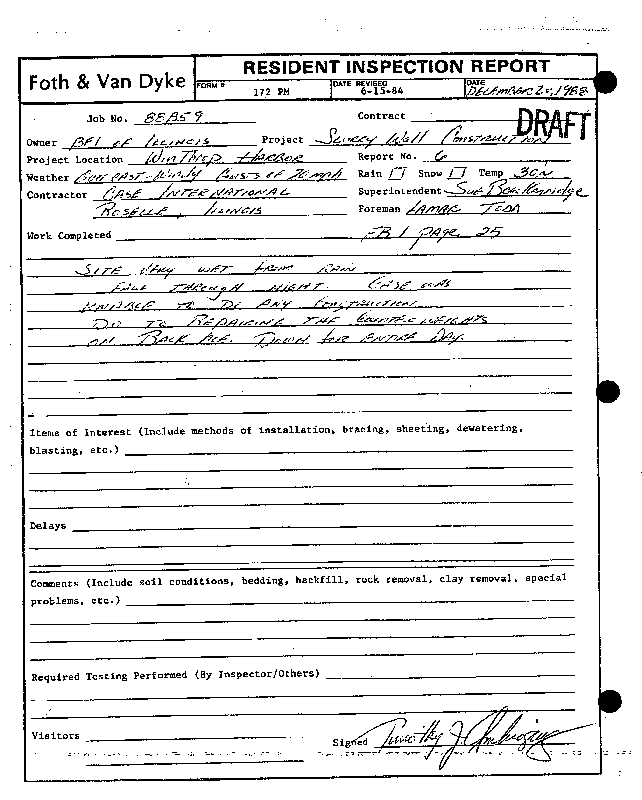 Foth & Van Dyke
RESIDENT INSPECTION REPORT
FORM # 172 PM DATE REVISED 6-15-84 DATE DECEMBER 1988
Job No. 88B59 Contract
DRAFT
Owner BFI OF ILLINOIS Project Slurry Wall Construction
Project Location WINTHROP HARBOR Report No. 6
Weather Windy Gusts of 20 mph Rain Snow Temp
Contractor CASE INTERNATIONAL Superintendent
ROSELLE, ILLINOIS Foreman LAMAR TODD
Work Completed FB 1 page 25
SITE VERY WET FROM RAIN
FALL THROUGH NIGHT. CASE WAS
UNABLE TO DO ANY CONSTRUCTION
DO TO REPAIRING THE COUNTERWEIGHTS
ON BACK HOE. DOWN FOR ENTIRE DAY.
Items of Interest (Include methods of installation, bracing, sheeting, dewatering,
blasting, etc.)
Delays
Comments (Include soil conditions, bedding, backfill, rock removal, clay removal, special
problems, etc.)
Required Testing Performed (By Inspector/Others)
Visitors Signed Timothy J.